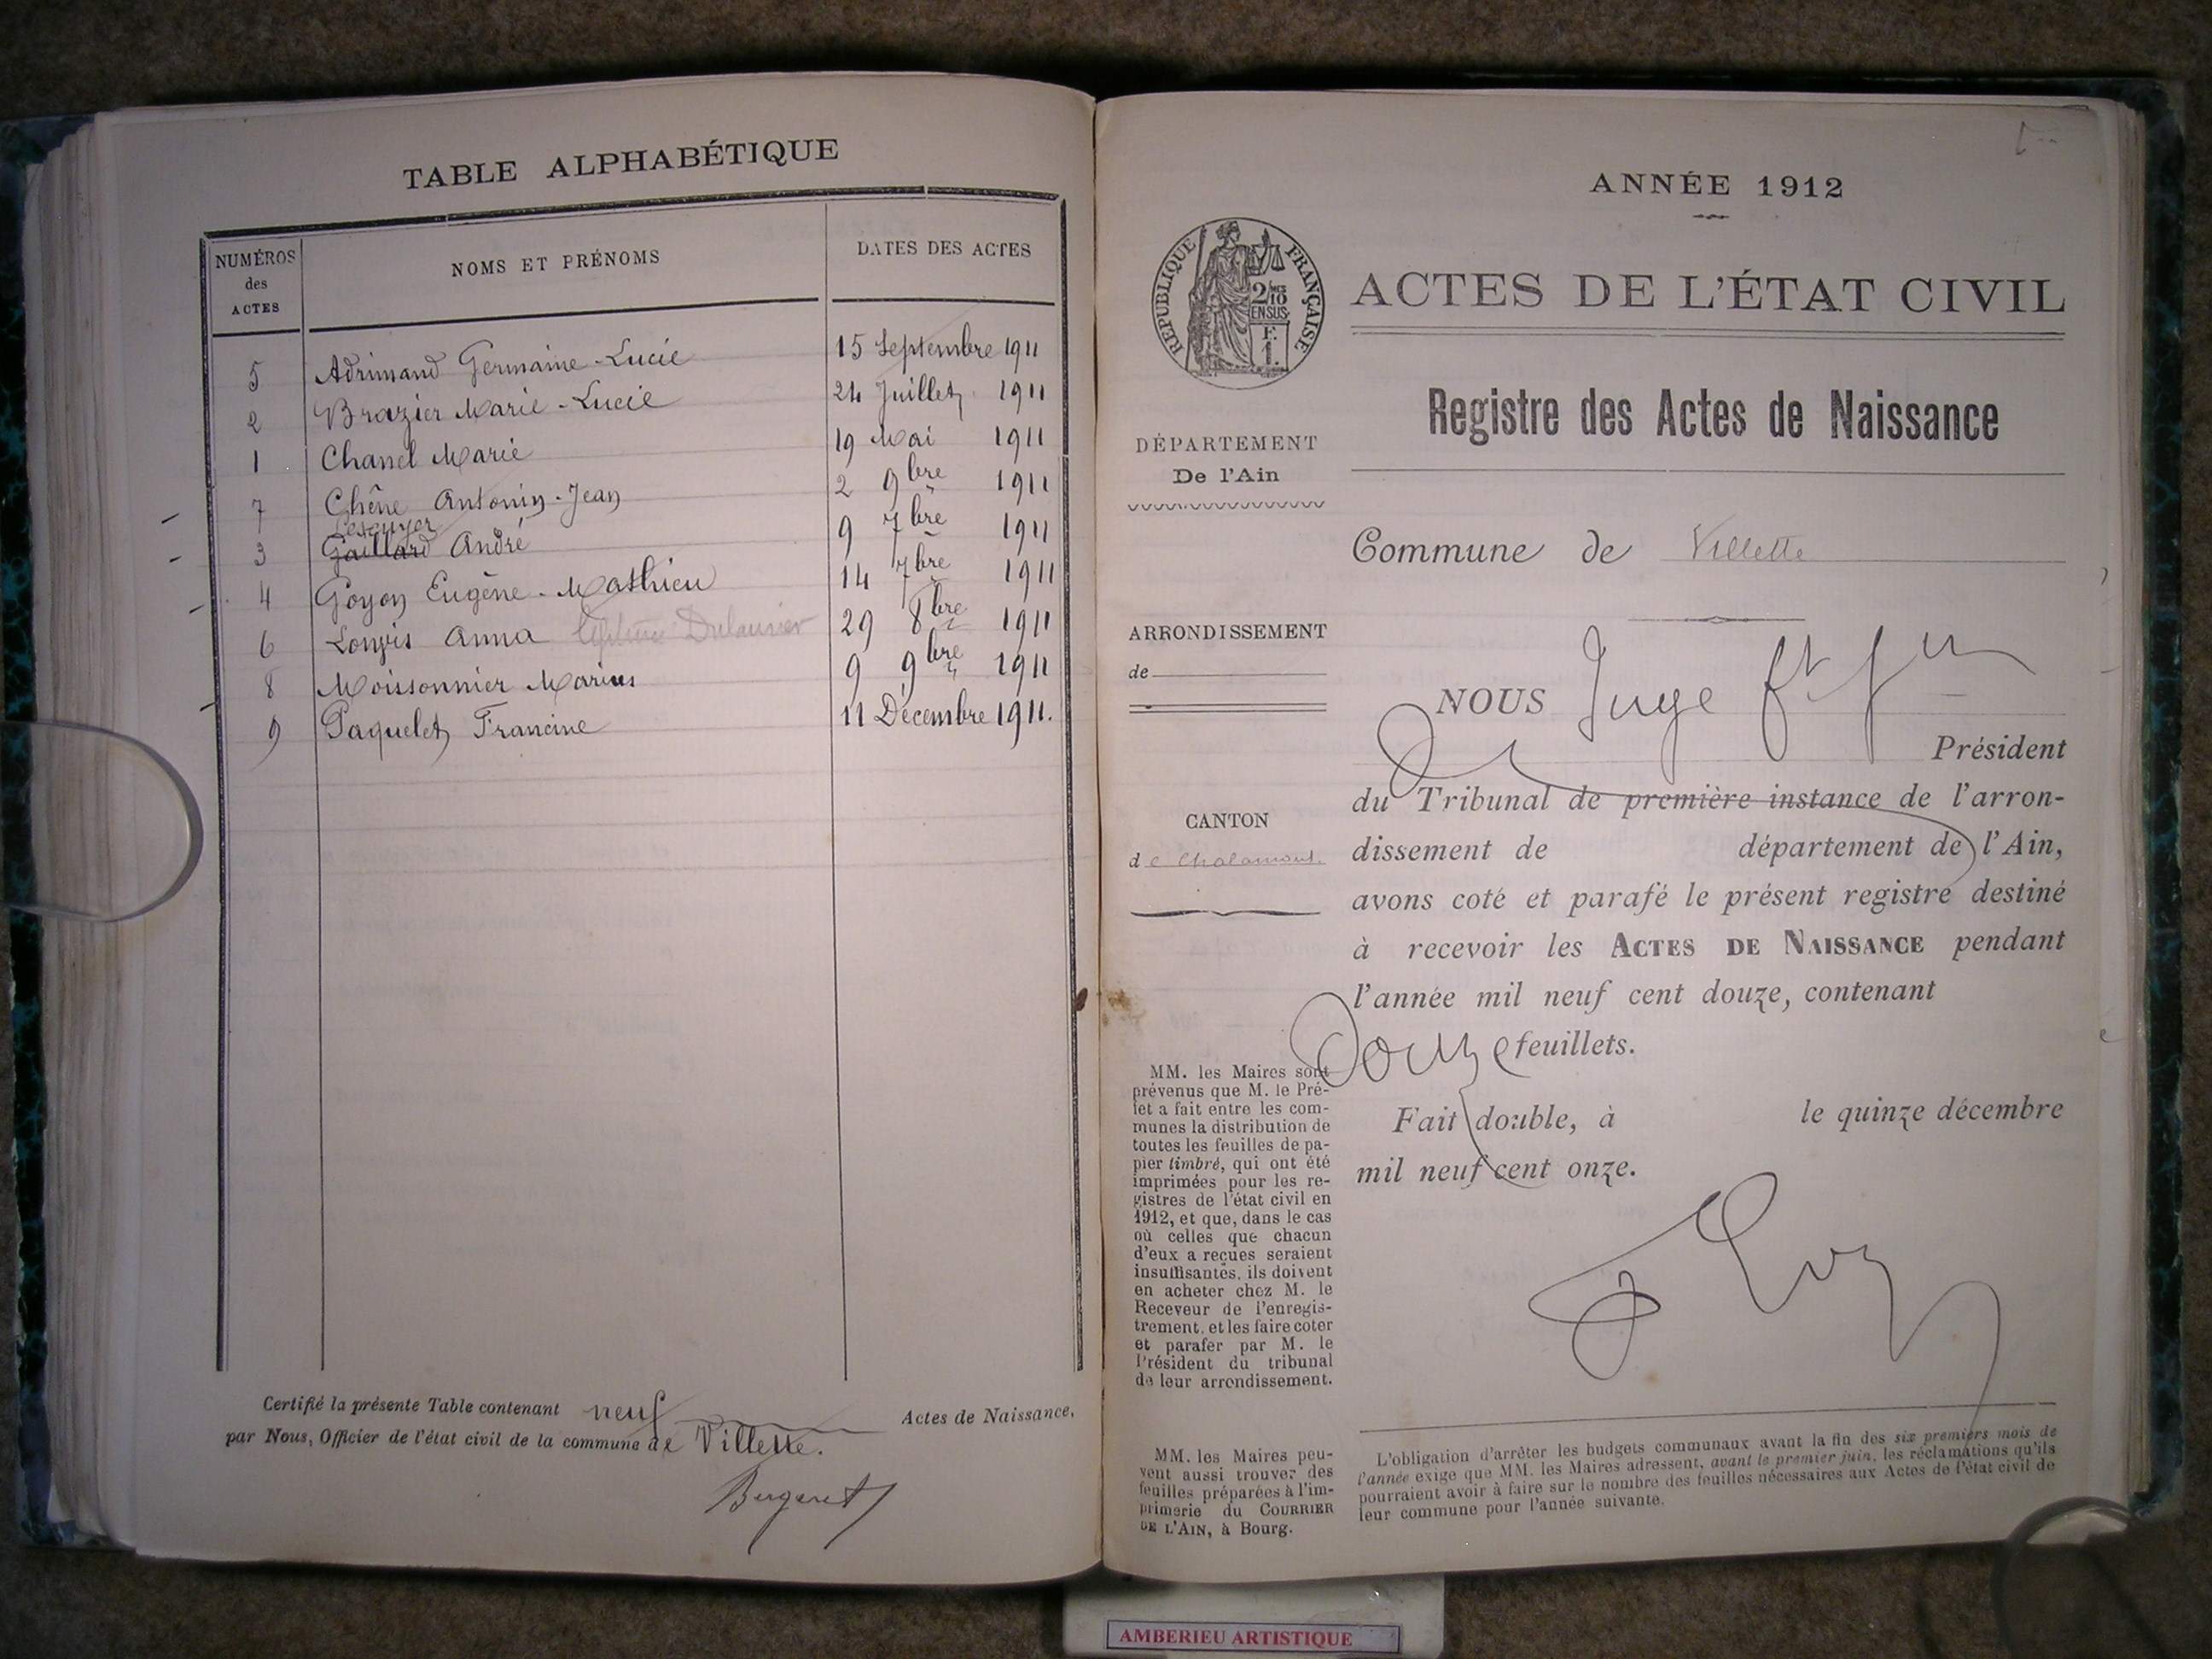 TABLE ALPHABÉTIQUE
NUMÉROS des ACTES
NOMS ET PRÉNOMS
DATES DES ACTES
5 Adrimand Germaine-Lucie 15 Septembre 1911
2 Brazier Marie-Lucie 24 Juillet 1911
1 Chanel Marie 19 Mai 1911
7 Chêne Antonin-Jean 2 9bre 1911
3 Gaillard André 9 7bre 1911
4 Goyon Eugène-Mathieu 14 7bre 1911
6 Anna 29 8bre 1911
8 Moissonnier Marius 9 9bre 1911
9 Paquelet Francine 11 Décembre 1911.
Certifié la présente Table contenant neuf Actes de Naissance,
par Nous, Officier de l'état civil de la commune de Villette.
Bergeret
ANNÉE 1912
RÉPUBLIQUE FRANÇAISE
2/10
EN SUS
F.
1.
ACTES DE L'ÉTAT CIVIL
Registre des Actes de Naissance
DÉPARTEMENT
De l'Ain
Commune de Villette
ARRONDISSEMENT
de
CANTON
de Chalamont.
NOUS Juge
Président
du Tribunal de première instance de l'arron-
dissement de département de l'Ain,
avons coté et parafé le présent registre destiné
à recevoir les ACTES DE NAISSANCE pendant
l'année mil neuf cent douze, contenant
Douze feuillets.
Fait double, à le quinze décembre
mil neuf cent onze.
MM. les Maires sont
prévenus que M. le Pré-
fet a fait entre les com-
munes la distribution de
toutes les feuilles de pa-
pier timbré, qui ont été
imprimées pour les re-
gistres de l'état civil en
1912, et que, dans le cas
où celles que chacun
d'eux a reçues seraient
insuffisantes, ils doivent
en acheter chez M. le
Receveur de l'enregis-
trement, et les faire coter
et parafer par M. le
Président du tribunal
de leur arrondissement.
MM. les Maires peu-
vent aussi trouver des
feuilles préparées à l'im-
primerie du COURRIER
DE L'AIN, à Bourg.
L'obligation d'arrêter les budgets communaux avant la fin des six premiers mois de
l'année exige que MM. les Maires adressent, avant le premier juin, les réclamations qu'ils
pourraient avoir à faire sur le nombre des feuilles nécessaires aux Actes de l'état civil de
leur commune pour l'année suivante.
AMBERIEU ARTISTIQUE